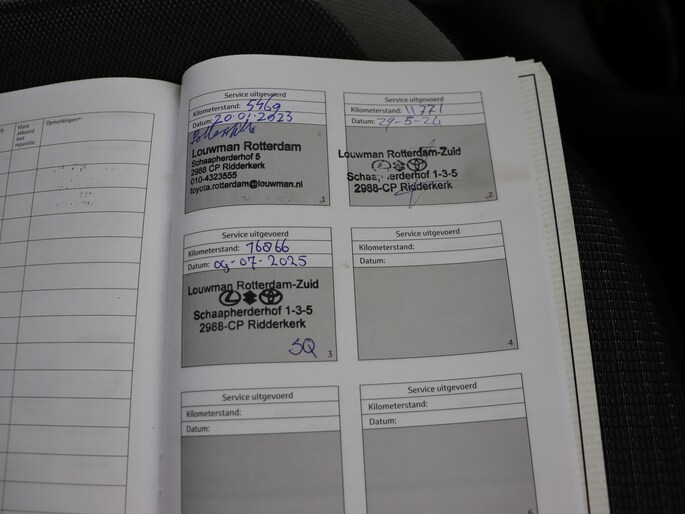 Klant akkoord met reparatie
Opmerkingen
Service uitgevoerd
Kilometerstand: 5469
Datum: 20.01.2023
Louwman Rotterdam
Schaapherderhof 5
2988 CP Ridderkerk
010-4323555
toyota.rotterdam@louwman.nl
1
Service uitgevoerd
Kilometerstand: 11771
Datum: 29-5-24
Louwman Rotterdam-Zuid
Schaapherderhof 1-3-5
2988-CP Ridderkerk
2
Service uitgevoerd
Kilometerstand: 16866
Datum: 09-07-2025
Louwman Rotterdam-Zuid
Schaapherderhof 1-3-5
2988-CP Ridderkerk
SQ
3
Service uitgevoerd
Kilometerstand:
Datum:
4
Service uitgevoerd
Kilometerstand:
Datum:
Service uitgevoerd
Kilometerstand:
Datum:
6